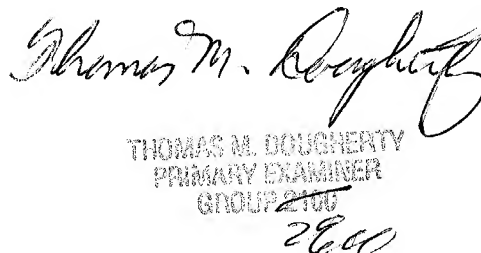 Thomas M. Dougherty
THOMAS M. DOUGHERTY
PRIMARY EXAMINER
GROUP 2100
2800